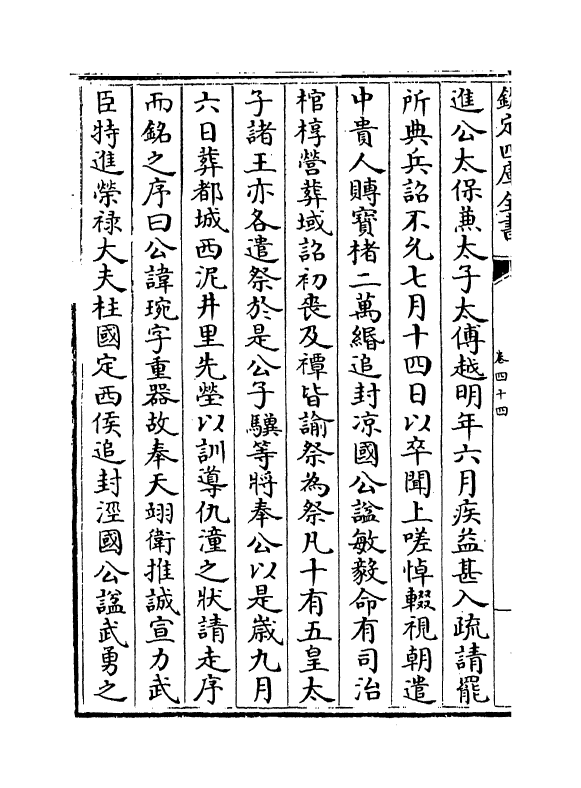 欽定四庫全書
卷四十四
進公太保兼太子太傅越明年六月疾益甚入疏請罷
所典兵詔不允七月十四日以卒聞上嗟悼輟視朝遣
中貴人賻寶楮二萬緡追封凉國公諡敏毅命有司治
棺椁營葬域詔初喪及禫皆諭祭為祭凡十有五皇太
子諸王亦各遣祭於是公子驥等將奉公以是歲九月
六日葬都城西泥井里先塋以訓導仇潼之狀請走序
而銘之序曰公諱琬字重器故奉天翊衛推誠宣力武
臣特進榮禄大夫柱國定西侯追封涇國公諡武勇之